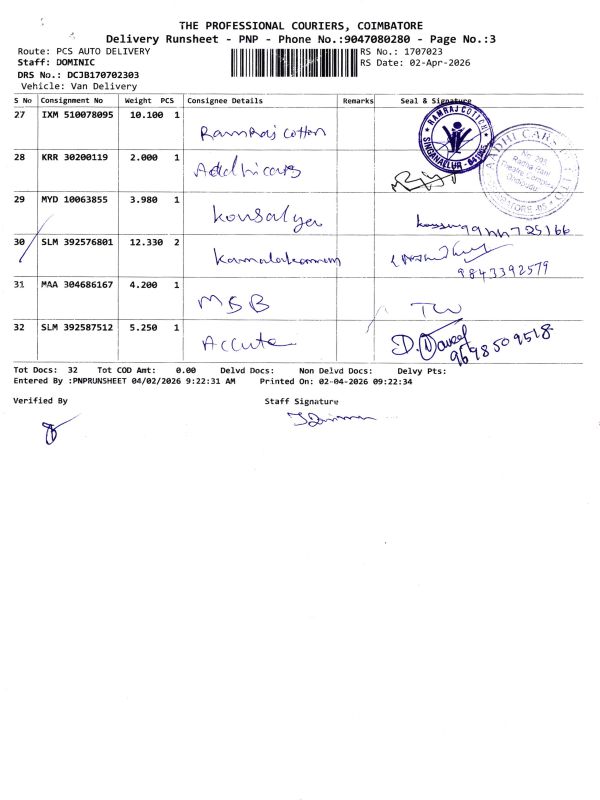 THE PROFESSIONAL COURIERS, COIMBATORE
Delivery Runsheet - PNP - Phone No.:9047080280 - Page No.:3
Route: PCS AUTO DELIVERY RS No.: 1707023
Staff: DOMINIC RS Date: 02-Apr-2026
DRS No.: DCJB170702303
Vehicle: Van Delivery
S No Consignment No Weight PCS Consignee Details Remarks Seal & Signature
27 IXM 510078095 10.100 1 Ramraj Cotton RAMRAJ COTTON SINGANALLUR
28 KRR 30200119 2.000 1 Addhi cars AADHI CARS
29 MYD 10063855 3.980 1 Kousalya
30 SLM 392576801 12.330 2 Kamalakannan
9843392579
31 MAA 304686167 4.200 1 MSB
32 SLM 392587512 5.250 1 Accute
9698509518
Tot Docs: 32 Tot COD Amt: 0.00 Delvd Docs: Non Delvd Docs: Delvy Pts:
Entered By :PNPRUNSHEET 04/02/2026 9:22:31 AM Printed On: 02-04-2026 09:22:34
Verified By Staff Signature